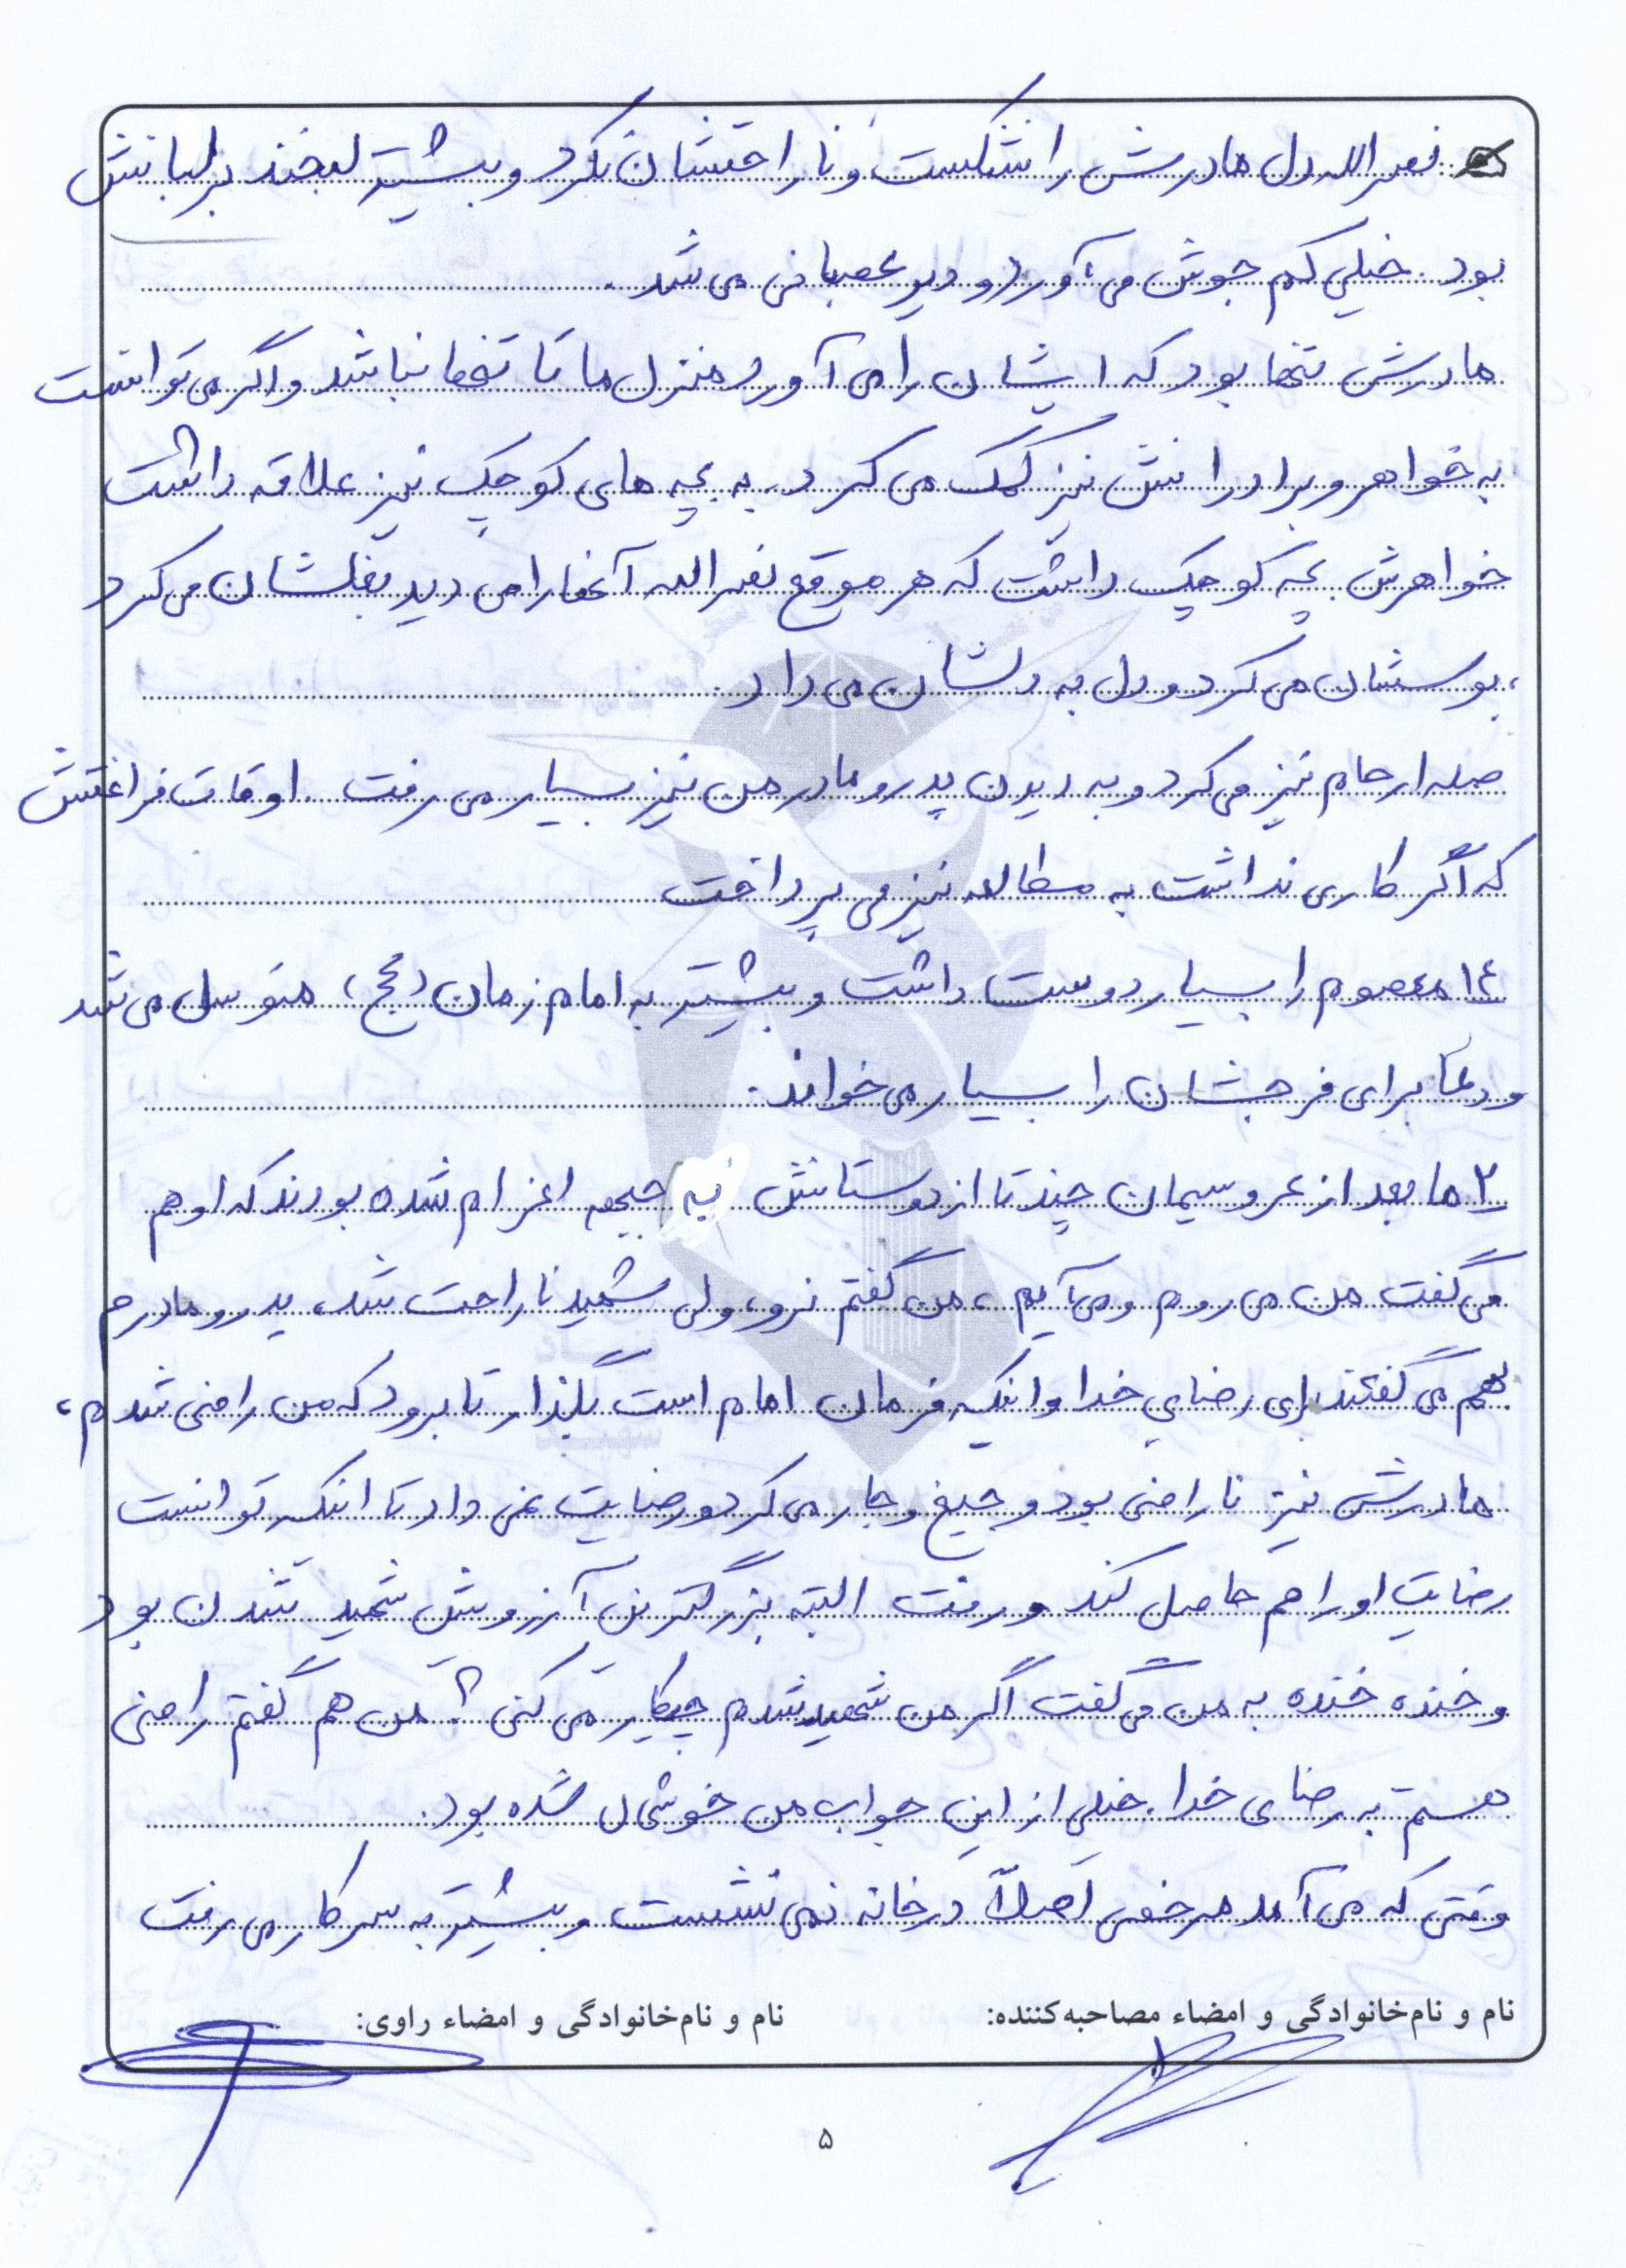 نصراله دل مادرش را نشکست و ناراحتشان نکرد و بیشتر لبخند بر لبانش
بود. خیلی کم جوش می آورد و دیر عصبانی می شد.
مادرش تنها بود که ایشان را می آورد منزل ما تا تنها نباشد و اگر می توانست
به خواهر و برادرانش نیز کمک می کرد. به بچه های کوچک نیز علاقه داشت
خواهرش بچه کوچک داشت که هر موقع نصرالله آنها را می دید بغلشان می کرد
، بوسشان می کرد و دل به دلشان می داد.
صله ارحام نیز می کرد و به دیدن پدر و مادر من نیز بسیار می رفت. اوقات فراغتش
که اگر کاری نداشت به مطالعه نیز می پرداخت
۱۴ معصوم را بسیار دوست داشت و بیشتر به امام زمان (عج) متوسل می شد
و دعا برای فرجشان را بسیار می خواند.
۲ ما بعد از عروسیمان چند تا از دوستانش به جبهه اعزام شده بودند که او هم
می گفت من می روم و می آیم، من گفتم نرو، ولی شهید ناراحت شد، پدر و مادرم
هم می گفتند برای رضای خدا و اینکه فرمان امام است بگذار تا برود که من راضی شدم،
مادرش نیز ناراضی بود و جیغ و جار می کرد و رضایت نمی داد تا اینکه توانست
رضایت او را هم حاصل کند و رفت البته بزرگترین آرزویش شهید شدن بود
و خنده خنده به من می گفت اگر من شهید شدم چیکار می کنی؟ من هم گفتم راضی
هستم به رضای خدا. خیلی از این جواب من خوشحال شده بود.
وقتی که می آمد مرخصی اصلاً در خانه نمی نشست و بیشتر به سر کار می رفت
نام و نام‌خانوادگی و امضاء مصاحبه‌کننده:
نام و نام‌خانوادگی و امضاء راوی:
۵